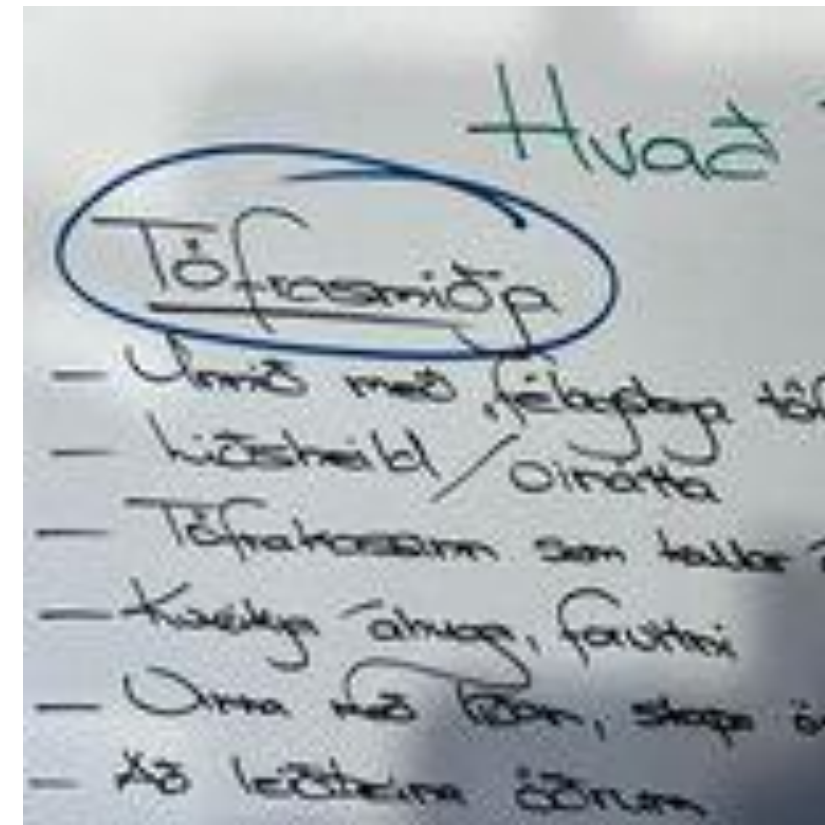 Hvað
Töfrasmiðja
- Unnið með félagslega töf
- Liðsheild / vinátta
- Töfrakassinn sem kallar á
- Kveikja áhuga, forvitni
- Vinna með líðan, skapa ör
- Að leiðbeina öðrum